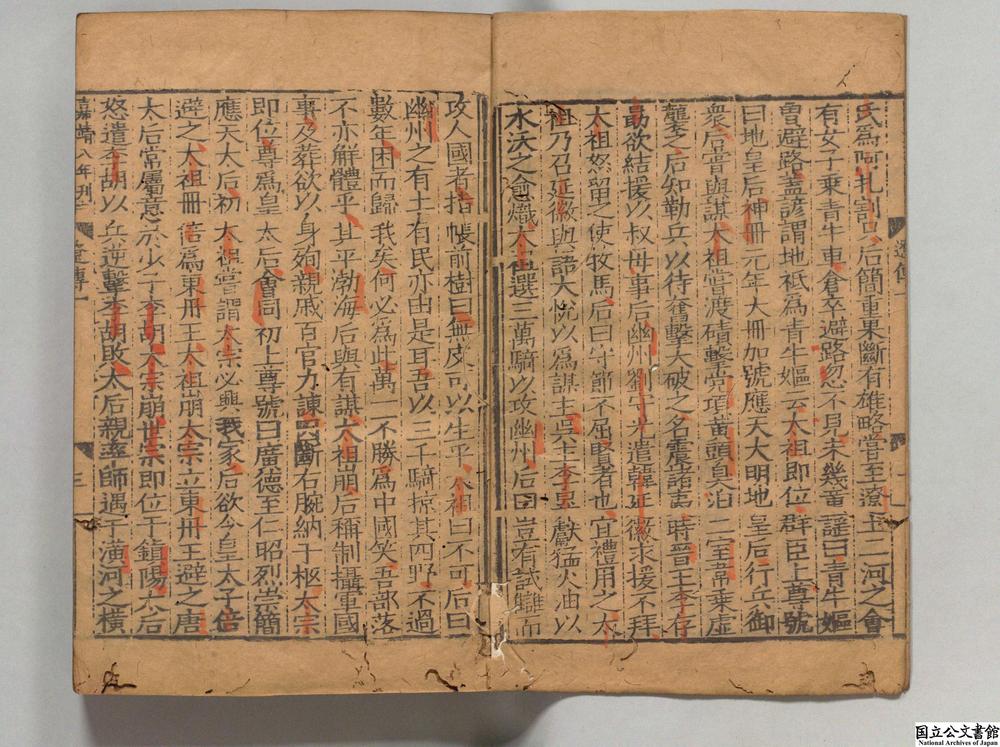 氏爲阿扎割只后簡重果斷有雄略嘗至遼土二河之會
有女子乗青牛車倉卒避路忽不見未幾童謡曰青牛嫗
曾避路蓋諺謂地祇爲青牛嫗云太祖即位群臣上尊號
曰地皇后神冊元年大冊加號應天大明地皇后行兵御
衆后嘗與謀太祖嘗渡磧擊党項黄頭臭泊二室韋乗虚
襲之后知勒兵以待奮擊大破之名震諸夷時晉王李存
朂欲結援以叔母事后幽州劉守光遣韓延徽求援不拜
太祖怒留之使牧馬后曰守節不屈賢者也宜禮用之太
祖乃召延徽與語大恱以爲謀主吳主李昪獻猛火油以
水沃之愈熾太祖選三萬騎以攻幽州后曰豈有試油而
攻人國者指帳前樹曰無皮可以生乎太祖曰不可后曰
幽州之有土有民亦由是耳吾以三千騎掠其四野不過
數年困而歸我矣何必爲此萬一不勝爲中國笑吾部落
不亦解體乎其平渤海后與有謀太祖崩后稱制攝軍國
事及葬欲以身殉親戚百官力諫因斷右腕納于柩太宗
即位尊爲皇太后會同初上尊號曰廣德至仁昭烈崇簡
應天太后初太祖嘗謂太宗必興我家后欲令皇太子倍
避之太祖冊倍爲東丹王太祖崩太宗立東丹王避之唐
太后常屬意於少子李胡太宗崩世宗即位于鎮陽太后
怒遣李胡以兵逆擊李胡敗太后親率師遇于潢河之橫
嘉靖八年刊
三
国立公文書館
National Archives of Japan